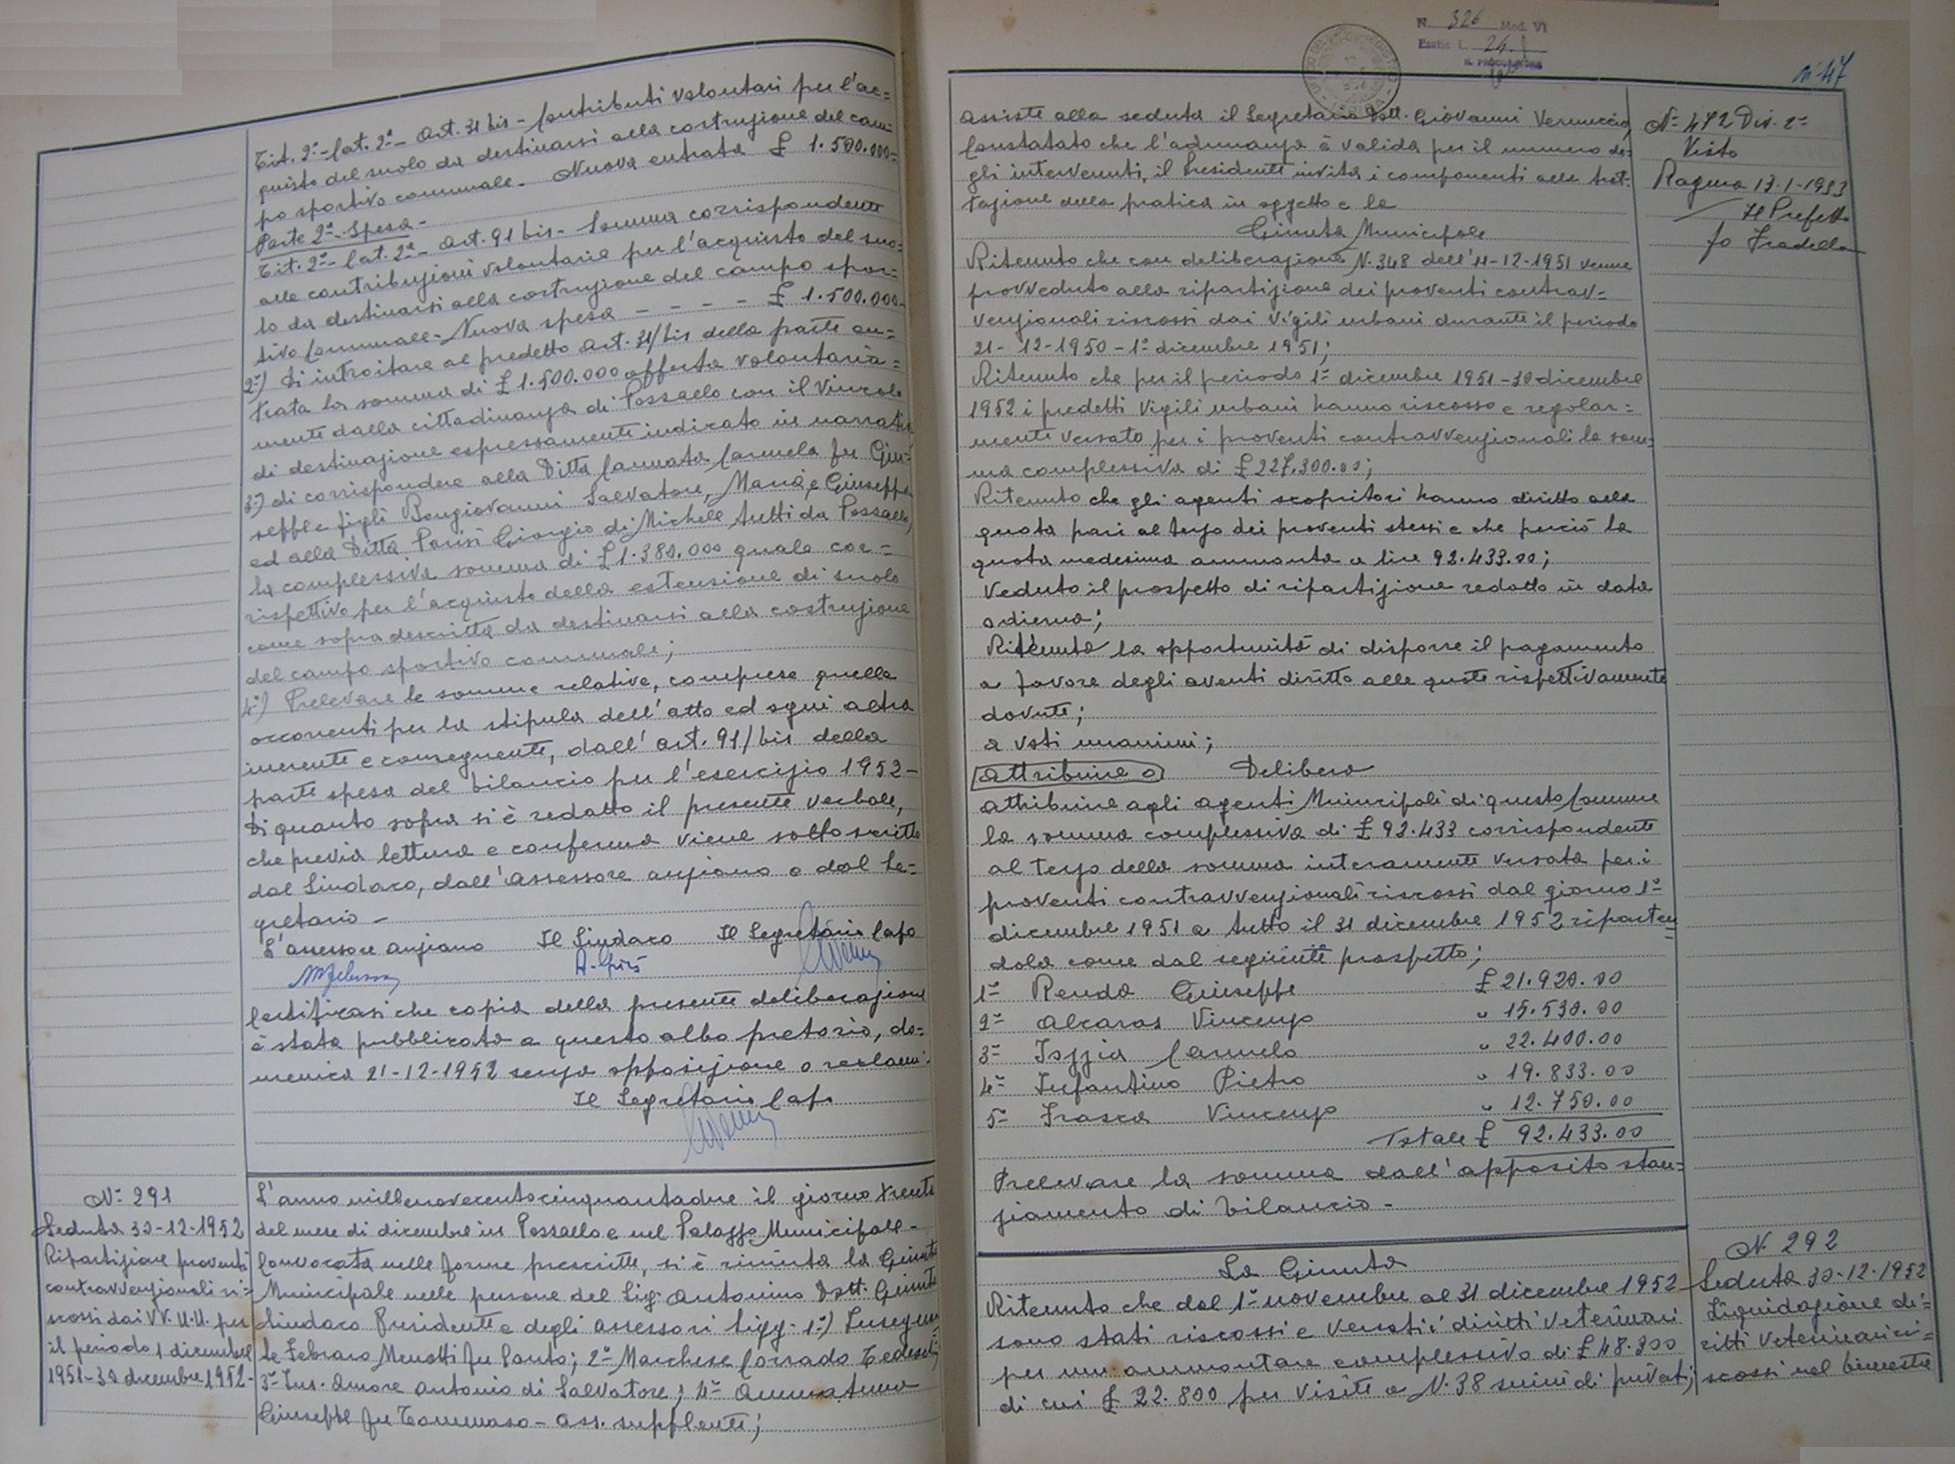 Tit. 2º - Cat. 2ª - Art. 31 bis - Contributi volontari per l'ac=
quisto del suolo da destinarsi alla costruzione del cam=
po sportivo comunale - Nuova entrata £ 1.500.000=
Parte 2ª - Spesa -
Tit. 2º - Cat. 2ª - Art. 91 bis - Somma corrispondente
alle contribuzioni volontarie per l'acquisto del suo=
lo da destinarsi alla costruzione del campo spor=
tivo comunale - Nuova spesa - - - - £ 1.500.000=
2º) Di introitare al predetto art. 31/bis della parte en=
trata la somma di £ 1.500.000 offerta volontaria=
mente dalla cittadinanza di Pozzallo con il vincolo
di destinazione espressamente indicato in narrativa
3º) di corrispondere alla Ditta Cannata Carmela fu Giu=
seppe e figli Bongiovanni Salvatore, Maria e Giuseppe
ed alla Ditta Parisi Giorgio di Michele tutti da Pozzallo,
la complessiva somma di £ 1.380.000 quale cor=
rispettivo per l'acquisto della estensione di suolo
come sopra descritta da destinarsi alla costruzione
del campo sportivo comunale;
4º) Prelevare le somme relative, comprese quelle
occorrenti per la stipula dell'atto ed ogni altra
inerente e conseguente, dall'art. 91/bis della
parte spesa del bilancio per l'esercizio 1952 -
Di quanto sopra si è redatto il presente verbale,
che previa lettura e conferma viene sottoscritto
dal Sindaco, dall'assessore anziano e dal Se=
gretario -
L'assessore anziano Il Sindaco Il Segretario Capo
Certificasi che copia della presente deliberazione
è stata pubblicata a questo albo pretorio, do=
menica 21-12-1952 senza opposizione o reclami.
Il Segretario Capo
Nº 291
Seduta 30-12-1952
Ripartizione proventi
contravvenzionali ri=
scossi dai VV. U.U. per
il periodo 1 dicembre
1951-30 dicembre 1952-
L'anno millenovecentocinquantadue il giorno trenta
del mese di dicembre in Pozzallo e nel Palazzo Municipale -
Convocata nelle forme prescritte, si è riunita la Giunta
Municipale nelle persone del Sig. Antonino Dott. Giunta
Sindaco Presidente e degli assessori Sigg. 1º)
Febraro Menotti fu Santo; 2º Marchese Corrado Tedeschi
3º Ins. Amore Antonio di Salvatore; 4º Ammatuna
Giuseppe fu Tommaso - ass. supplente;
N. 326 Mod. VI
Esatte L. 24.
IL PROCURATORE
nº 47
assiste alla seduta il Segretario Dott. Giovanni Vernuccio,
Constatato che l'adunanza è valida per il numero de=
gli intervenuti, il Presidente invita i componenti alla trat=
tazione della pratica in oggetto e la
Giunta Municipale
Ritenuto che con deliberazione N. 348 dell'11-12-1951 venne
provveduto alla ripartizione dei proventi contrav=
venzionali riscossi dai Vigili urbani durante il periodo
21-12-1950 - 1º dicembre 1951;
Ritenuto che per il periodo 1º dicembre 1951-30 dicembre
1952 i predetti Vigili urbani hanno riscosso e regolar=
mente versato per i proventi contravvenzionali la som=
ma complessiva di £ 227.300.00;
Ritenuto che gli agenti scopritori hanno diritto alla
quota pari al terzo dei proventi stessi e che perciò la
quota medesima ammonta a lire 92.433.00;
Veduto il prospetto di ripartizione redatto in data
odierna;
Ritenuta la opportunità di disporre il pagamento
a favore degli aventi diritto alle quote rispettivamente
dovute;
a voti unanimi;
attribuire a Delibera
attribuire agli agenti Municipali di questo Comune
la somma complessiva di £ 92.433 corrispondente
al terzo della somma interamente versata per i
proventi contravvenzionali riscossi dal giorno 1º
dicembre 1951 a tutto il 31 dicembre 1952 riparten=
dola come dal seguente prospetto;
1º Renda Giuseppe £ 21.920.00
2º Alcaras Vincenzo " 15.530.00
3º Iozzia Carmelo " 22.400.00
4º Infantino Pietro " 19.833.00
5º Frasca Vincenzo " 12.750.00
Totale £ 92.433.00
Prelevare la somma dall'apposito stan=
ziamento di bilancio -
Nº 472 Div. 2ª
Visto
Ragusa 13-1-1953
Il Prefetto
fo Fradella
La Giunta
Ritenuto che dal 1º novembre al 31 dicembre 1952
sono stati riscossi e versati i diritti veterinari
per un ammontare complessivo di £ 48.300
di cui £ 22.800 per visite a N. 38 suini di privati;
N. 292
Seduta 30-12-1952
Liquidazione di=
ritti veterinari ri=
scossi nel bimestre